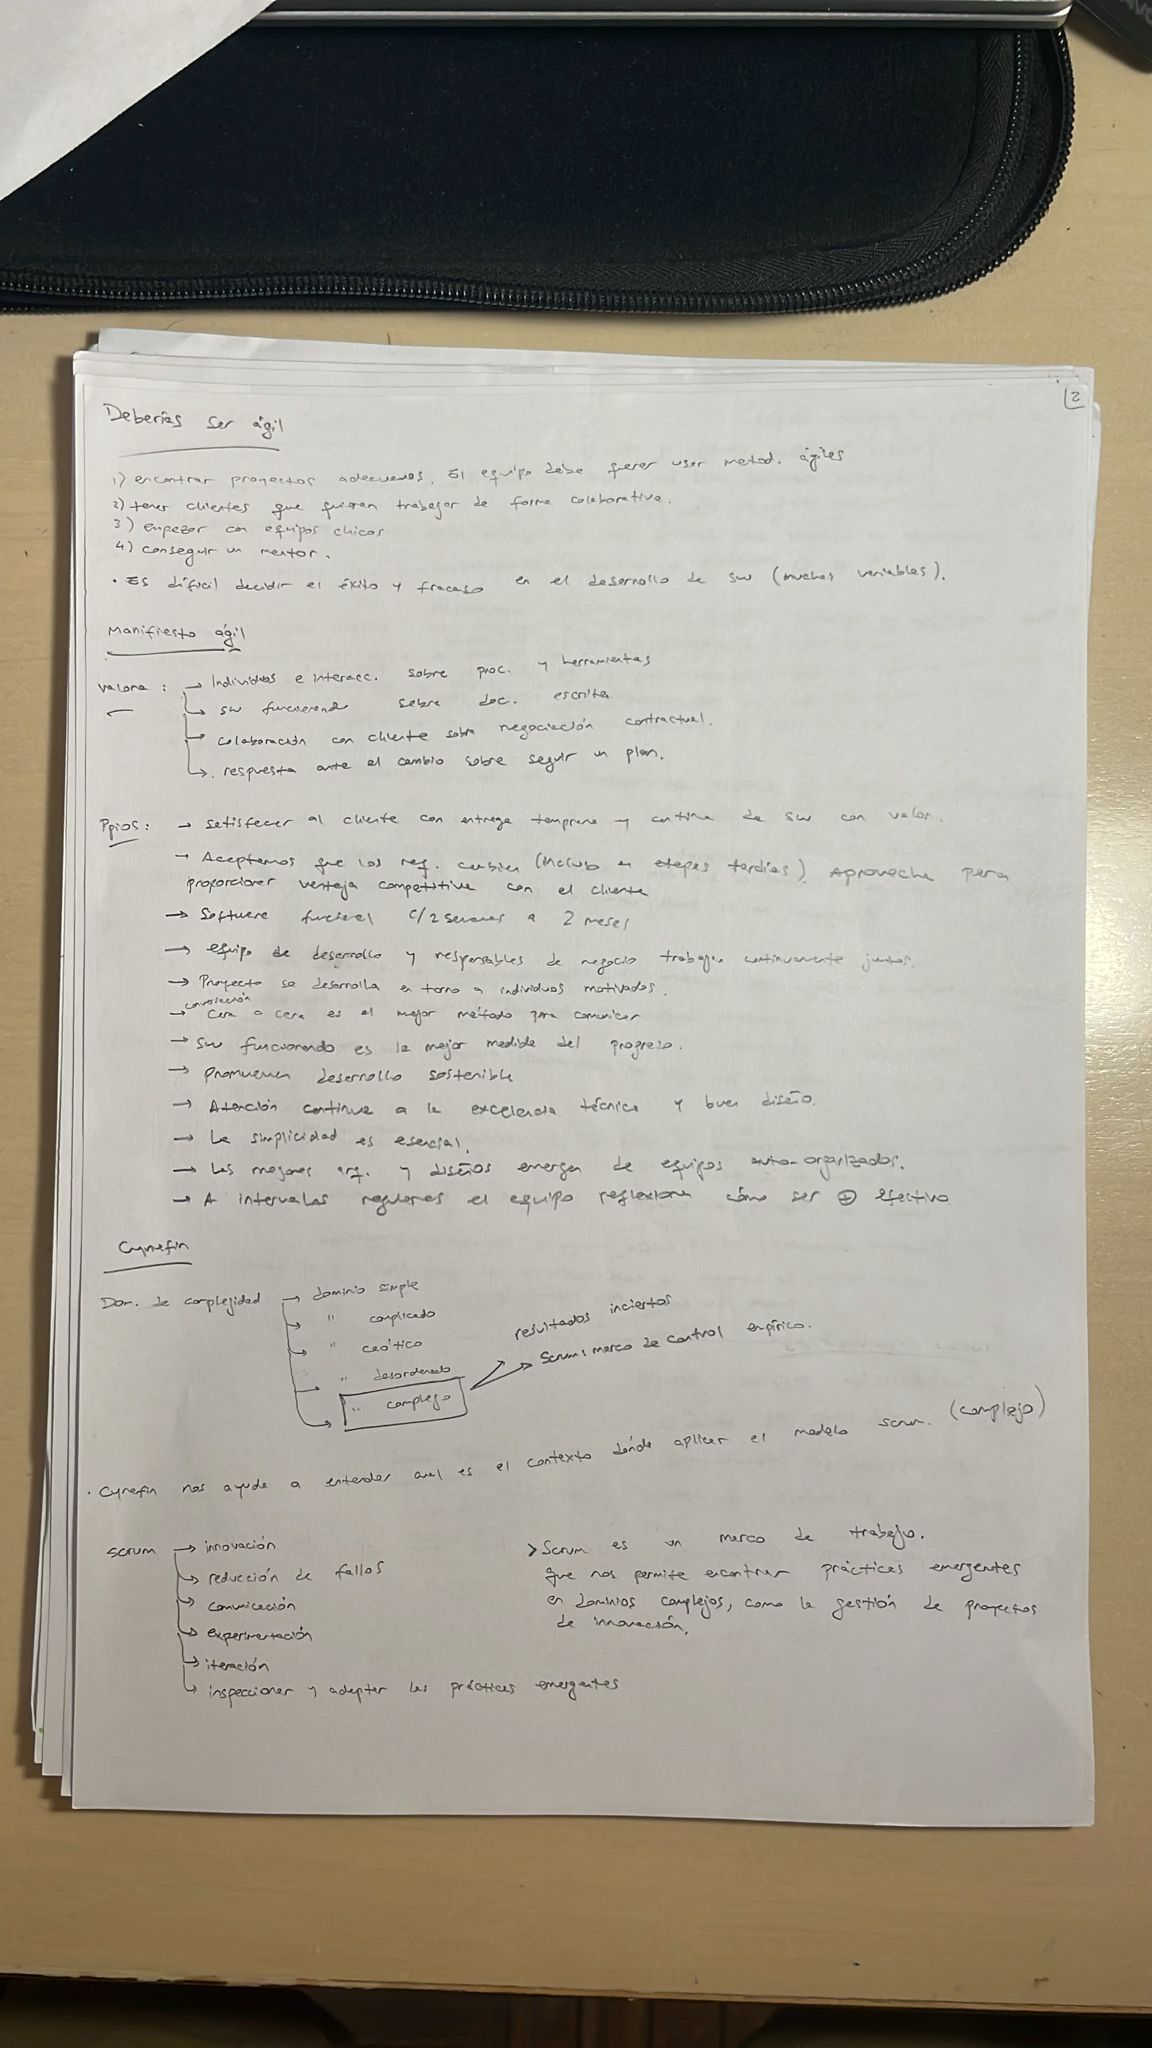 2
Deberías ser ágil
1) encontrar proyectos adecuados. El equipo debe querer usar metod. ágiles
2) tener clientes que quieran trabajar de forma colaborativa.
3) empezar con equipos chicos
4) conseguir un mentor.
· Es difícil decidir el éxito y fracaso en el desarrollo de sw (muchas variables).
Manifiesto ágil
Valora: → Individuos e interacc. sobre proc. y herramientas
→ sw funcionando sobre doc. escrita
→ colaboración con cliente sobre negociación contractual.
→ respuesta ante el cambio sobre seguir un plan.
Ppios: → satisfacer al cliente con entrega temprana y continua de sw con valor.
→ Aceptamos que los req. cambien (incluso en etapas tardías). Aprovecha para
proporcionar ventaja competitiva con el cliente
→ Software funcional c/2 semanas a 2 meses
→ equipo de desarrollo y responsables de negocio trabajan continuamente juntos.
→ Proyecto se desarrolla en torno a individuos motivados.
conversación
→ Cara a cara es el mejor método para comunicar
→ Sw funcionando es la mejor medida del progreso.
→ promueven desarrollo sostenible
→ Atención continua a la excelencia técnica y buen diseño.
→ La simplicidad es esencial.
→ Las mejores arq. y diseños emergen de equipos auto-organizados.
→ A intervalos regulares el equipo reflexiona cómo ser ⊕ efectivo
Cynefin
Dom. de complejidad → dominio simple
→ " complicado
→ " caótico
→ " desordenado
→ " complejo
resultados inciertos
Scrum: marco de control empírico.
· Cynefin nos ayuda a entender cuál es el contexto dónde aplicar el modelo scrum. (complejo)
scrum → innovación
→ reducción de fallos
→ comunicación
→ experimentación
→ iteración
→ inspeccionar y adaptar las prácticas emergentes
> Scrum es un marco de trabajo.
que nos permite encontrar prácticas emergentes
en dominios complejos, como la gestión de proyectos
de innovación.